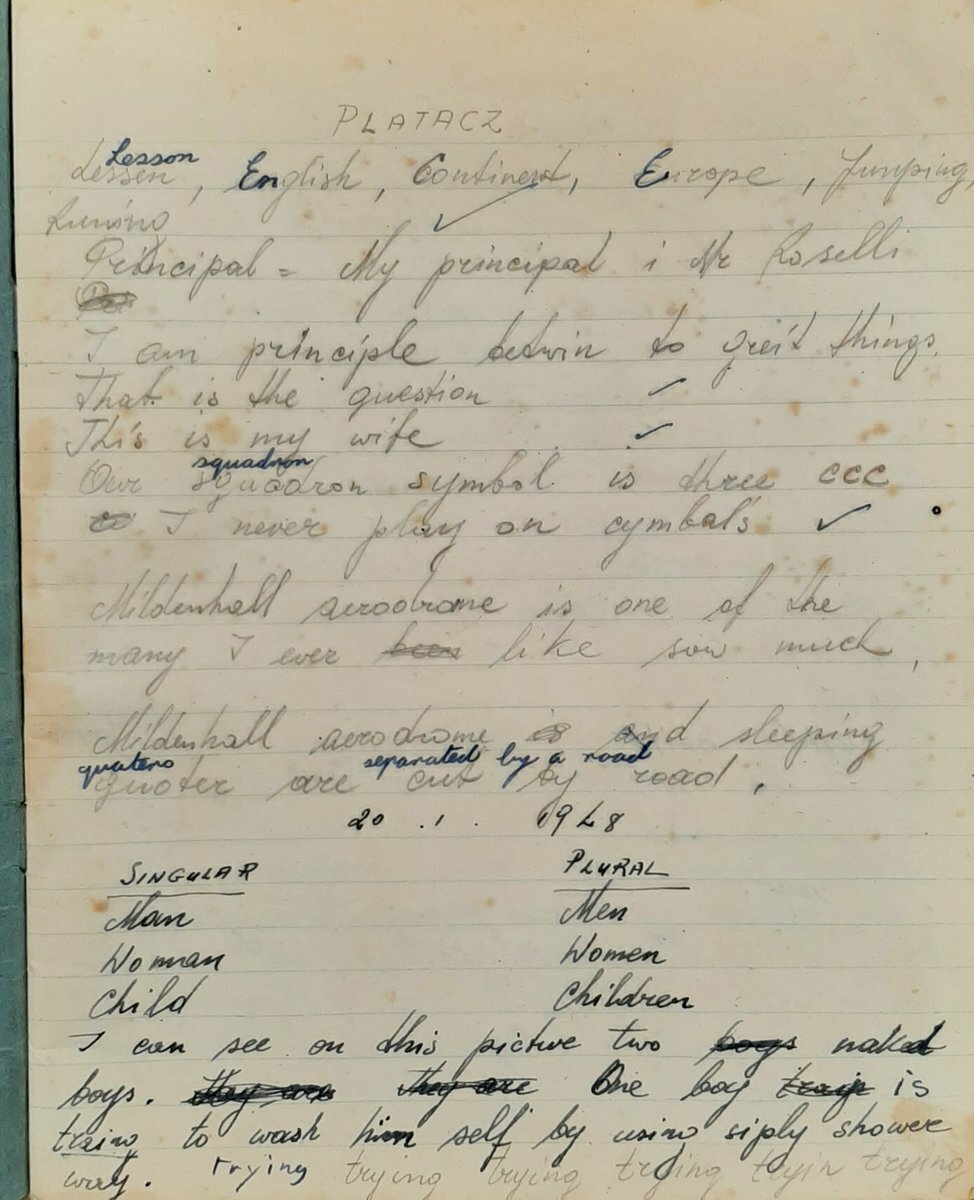 PLATACZ
Lesson
Lessen, English, Continent, Europe, Jumping,
Runing
Principal = My principal i Mr Roselli
I am principle betwin to greit things.
That is the question ✓
This is my wife ✓
squadron
Our squadron symbol is three ccc
I never play on cymbals ✓
Mildenhall aerodrome is one of the
many I ever been like sow much,
Mildenhall aerodrome is and sleeping
quaters separated by a road
quoter are cut by road.
20.1.1948
SINGULAR PLURAL
Man Men
Woman Women
Child Children
I can see on this picture two boys naked
boys. they are they are One boy is
traing to wash him self by using siply shower
way. trying trying trying trying tryin trying